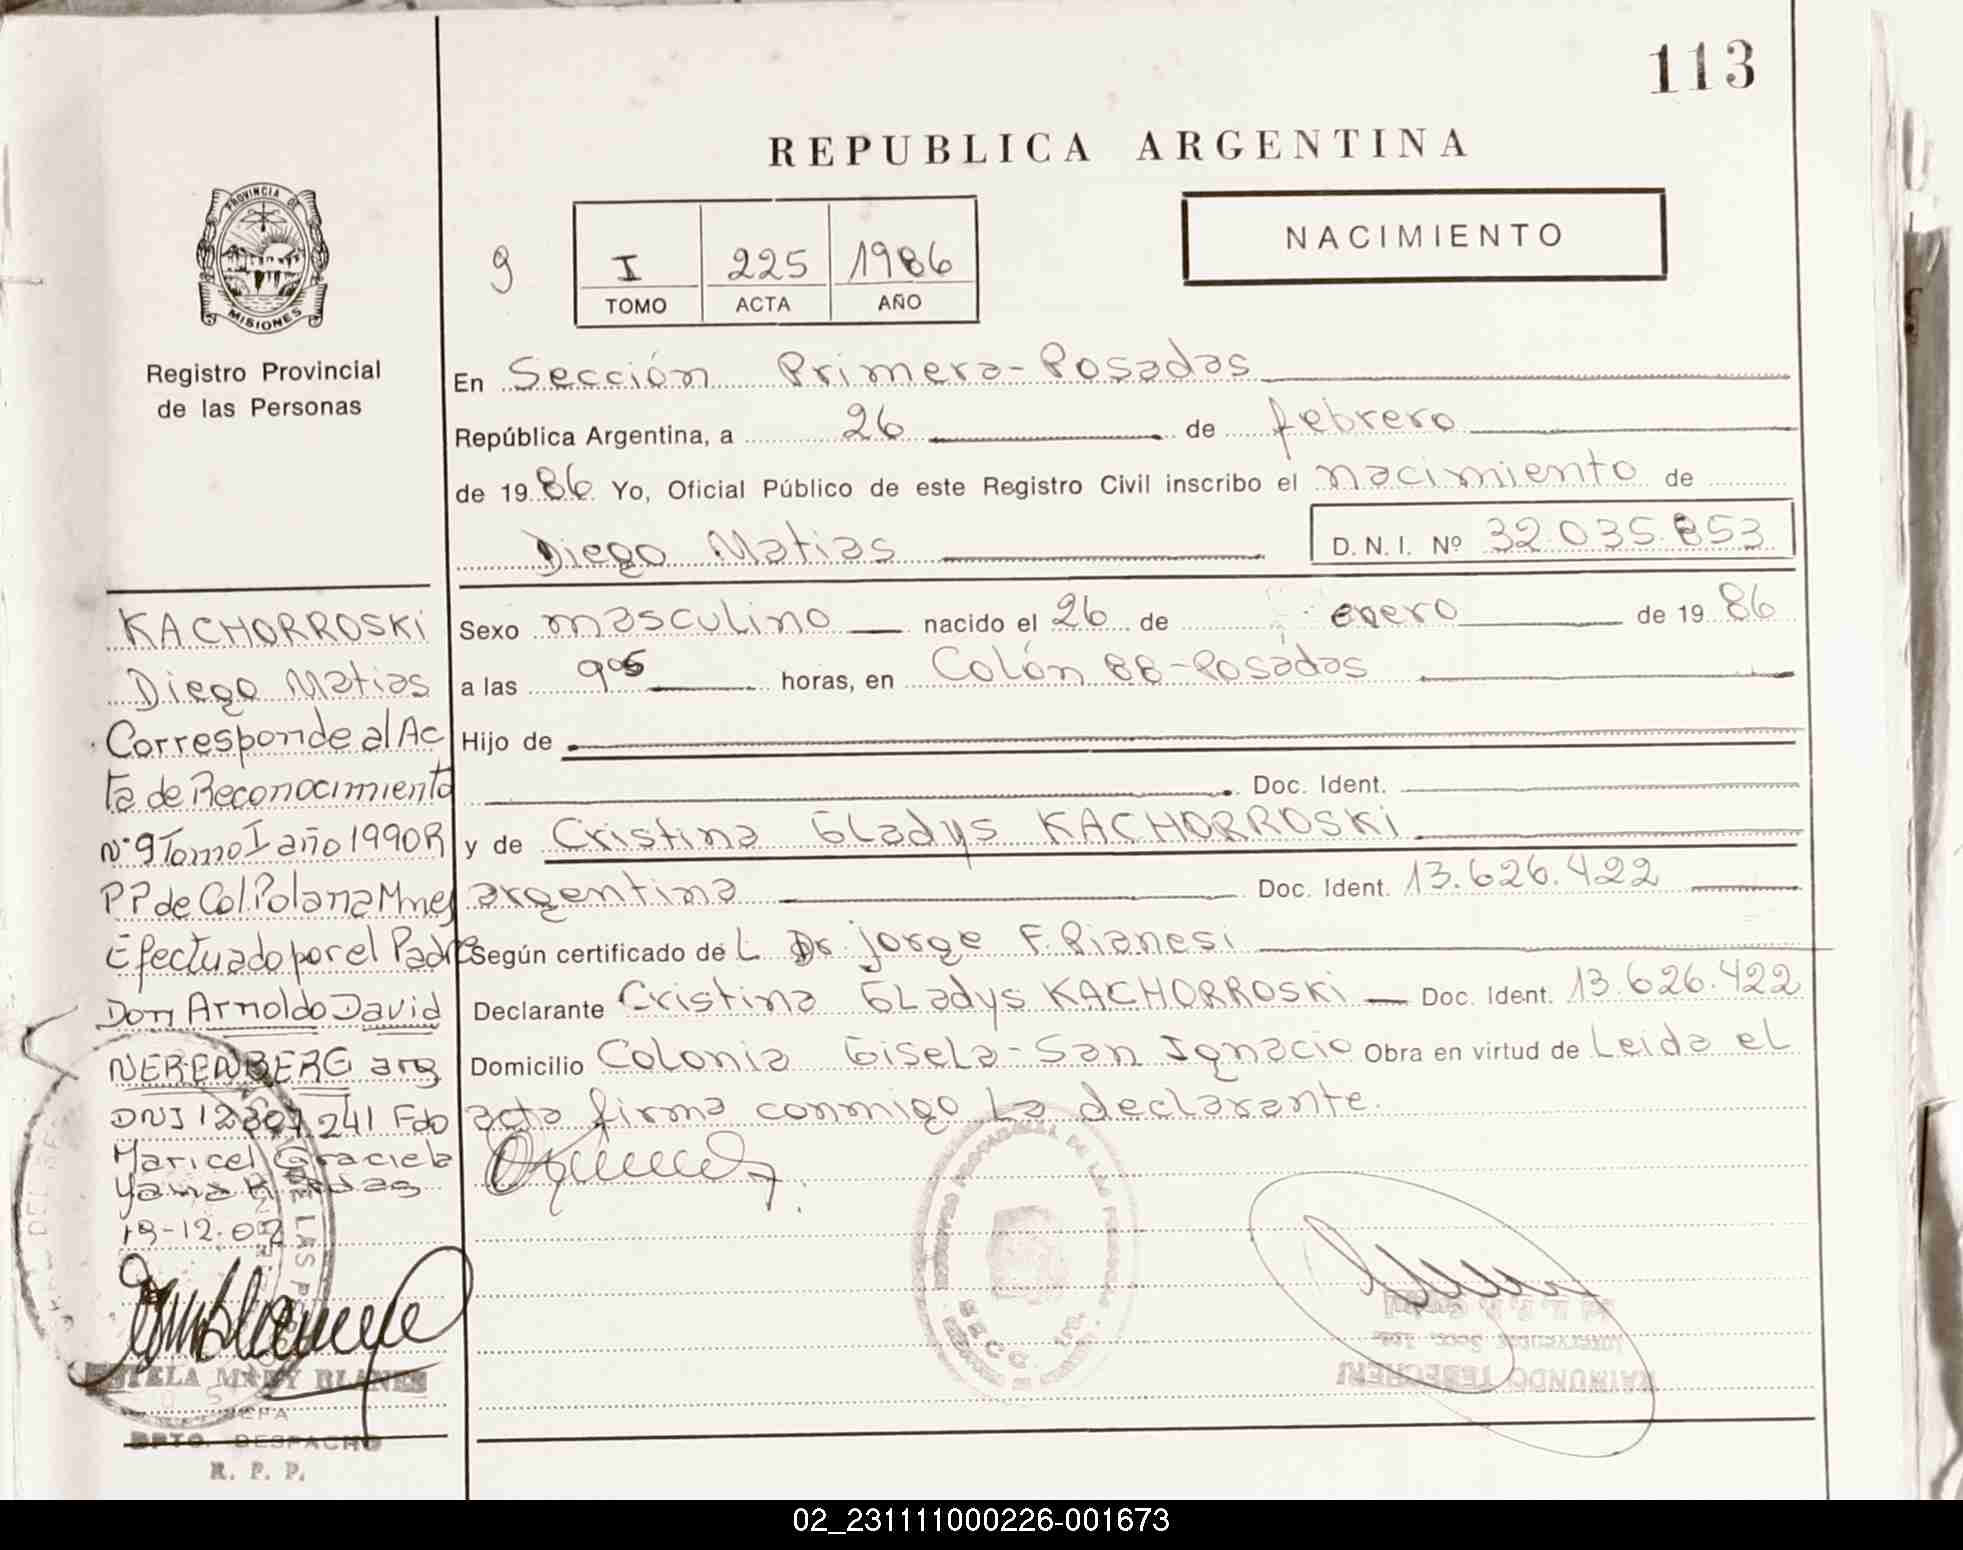 113
REPUBLICA ARGENTINA
PROVINCIA DE
MISIONES
Registro Provincial
de las Personas
9
I 225 1986
TOMO ACTA AÑO
NACIMIENTO
En Sección Primera-Posadas
República Argentina, a 26 de febrero
de 1986 Yo, Oficial Público de este Registro Civil inscribo el nacimiento de
Diego Matias D. N. I. Nº 32.035.853
Sexo masculino nacido el 26 de enero de 1986
a las 9 05 horas, en Colón 88-Posadas
Hijo de
Doc. Ident.
y de Cristina Gladys KACHORROSKi
argentina Doc. Ident. 13.626.422
Según certificado de L Dr. jorge F. Rianesi
Declarante Cristina Gladys KACHORROSKi Doc. Ident. 13.626.422
Domicilio Colonia Gisela-San Ignacio Obra en virtud de Leida el
acta firma conmigo la declarante.
KACHORROSKi
Diego Matias
Corresponde al Ac
ta de Reconocimiento
Nº 9 Tomo I año 1990 R
P P de Col. Polana Mnes
Efectuado por el Padre
Don Arnoldo David
NERENBERG arg
DNI 12.307.241 Fdo
Maricel Graciela
19-12-07
ESTELA MARY BLANES
JEFA
DPTO. DESPACHO
R. P. P.
RAIMUNDO TERECHEN
02_231111000226-001673